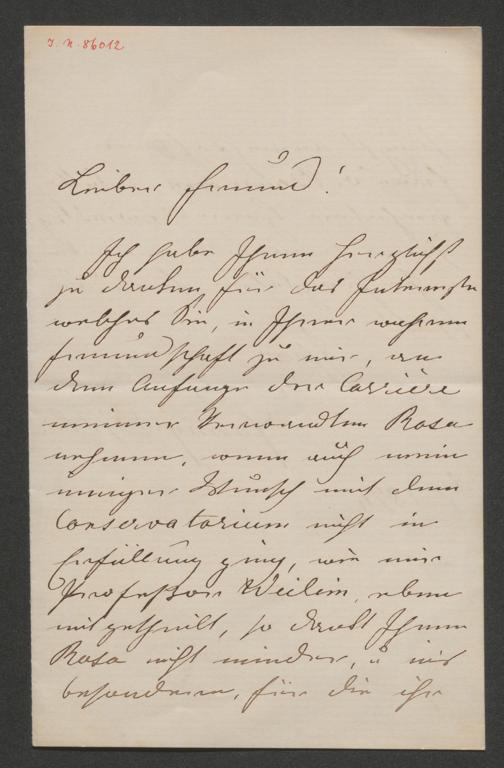 J. N. 86012
Lieber Freund!
Ich habe Ihnen herzlichst
zu danken für das Interesse
welches Sie, in Ihrer wahren
Freundschaft zu mir, an
dem Anfange der Carrière
meiner Verwandten Rosa
nehmen, wenn auch mein
inniger Wunsch mit dem
Conservatorium nicht in
Erfüllung ging, wie mir
Professor Weilen, eben
mitgetheilt, so dankt Ihnen
Rosa nicht minder, u
besonders, für die ihr